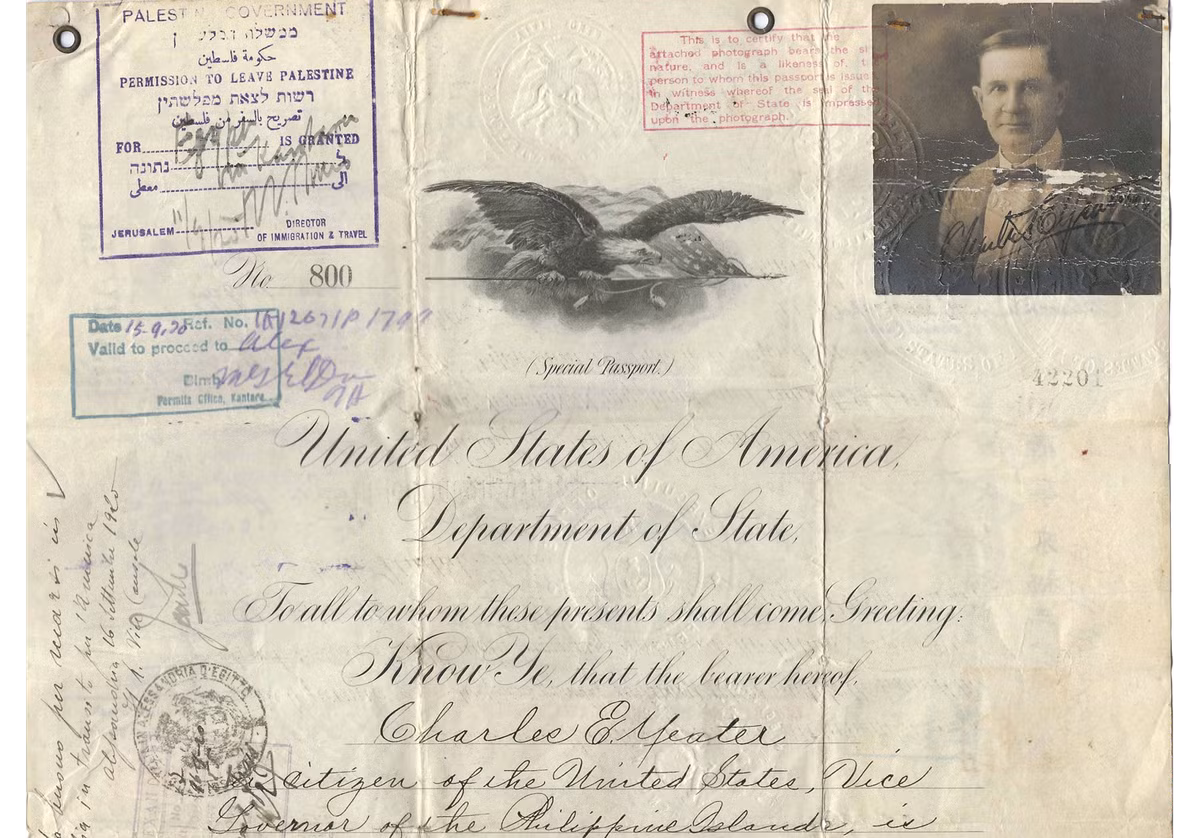 PALESTINE GOVERNMENT
حكومة فلسطين
PERMISSION TO LEAVE PALESTINE
רשות לצאת מפלשתין
تصريح بالسفر من فلسطين
FOR Egypt IS GRANTED
via Kantara
נתונה ל
معطى الى
JERUSALEM
DIRECTOR
OF IMMIGRATION & TRAVEL
This is to certify that the
attached photograph bears the
nature, and is a likeness of
person to whom this passport is issue
in witness whereof the seal of the
Department of State is impresse
upon the photograph.
No. 800
Date 15-9-20 Ref. No.
Valid to proceed to Alex
Permits Office, Kantara.
(Special Passport.)
42201
United States of America,
Department of State,
To all to whom these presents shall come, Greeting:
Know Ye, that the bearer hereof,
Charles E. Yeater
citizen of the United States, Vice
Governor of the Philippine Islands, is
in transito per l'America
Alessandria 16 Settembre 1920
Il Vice Console
ALESSANDRIA D'EGITTO